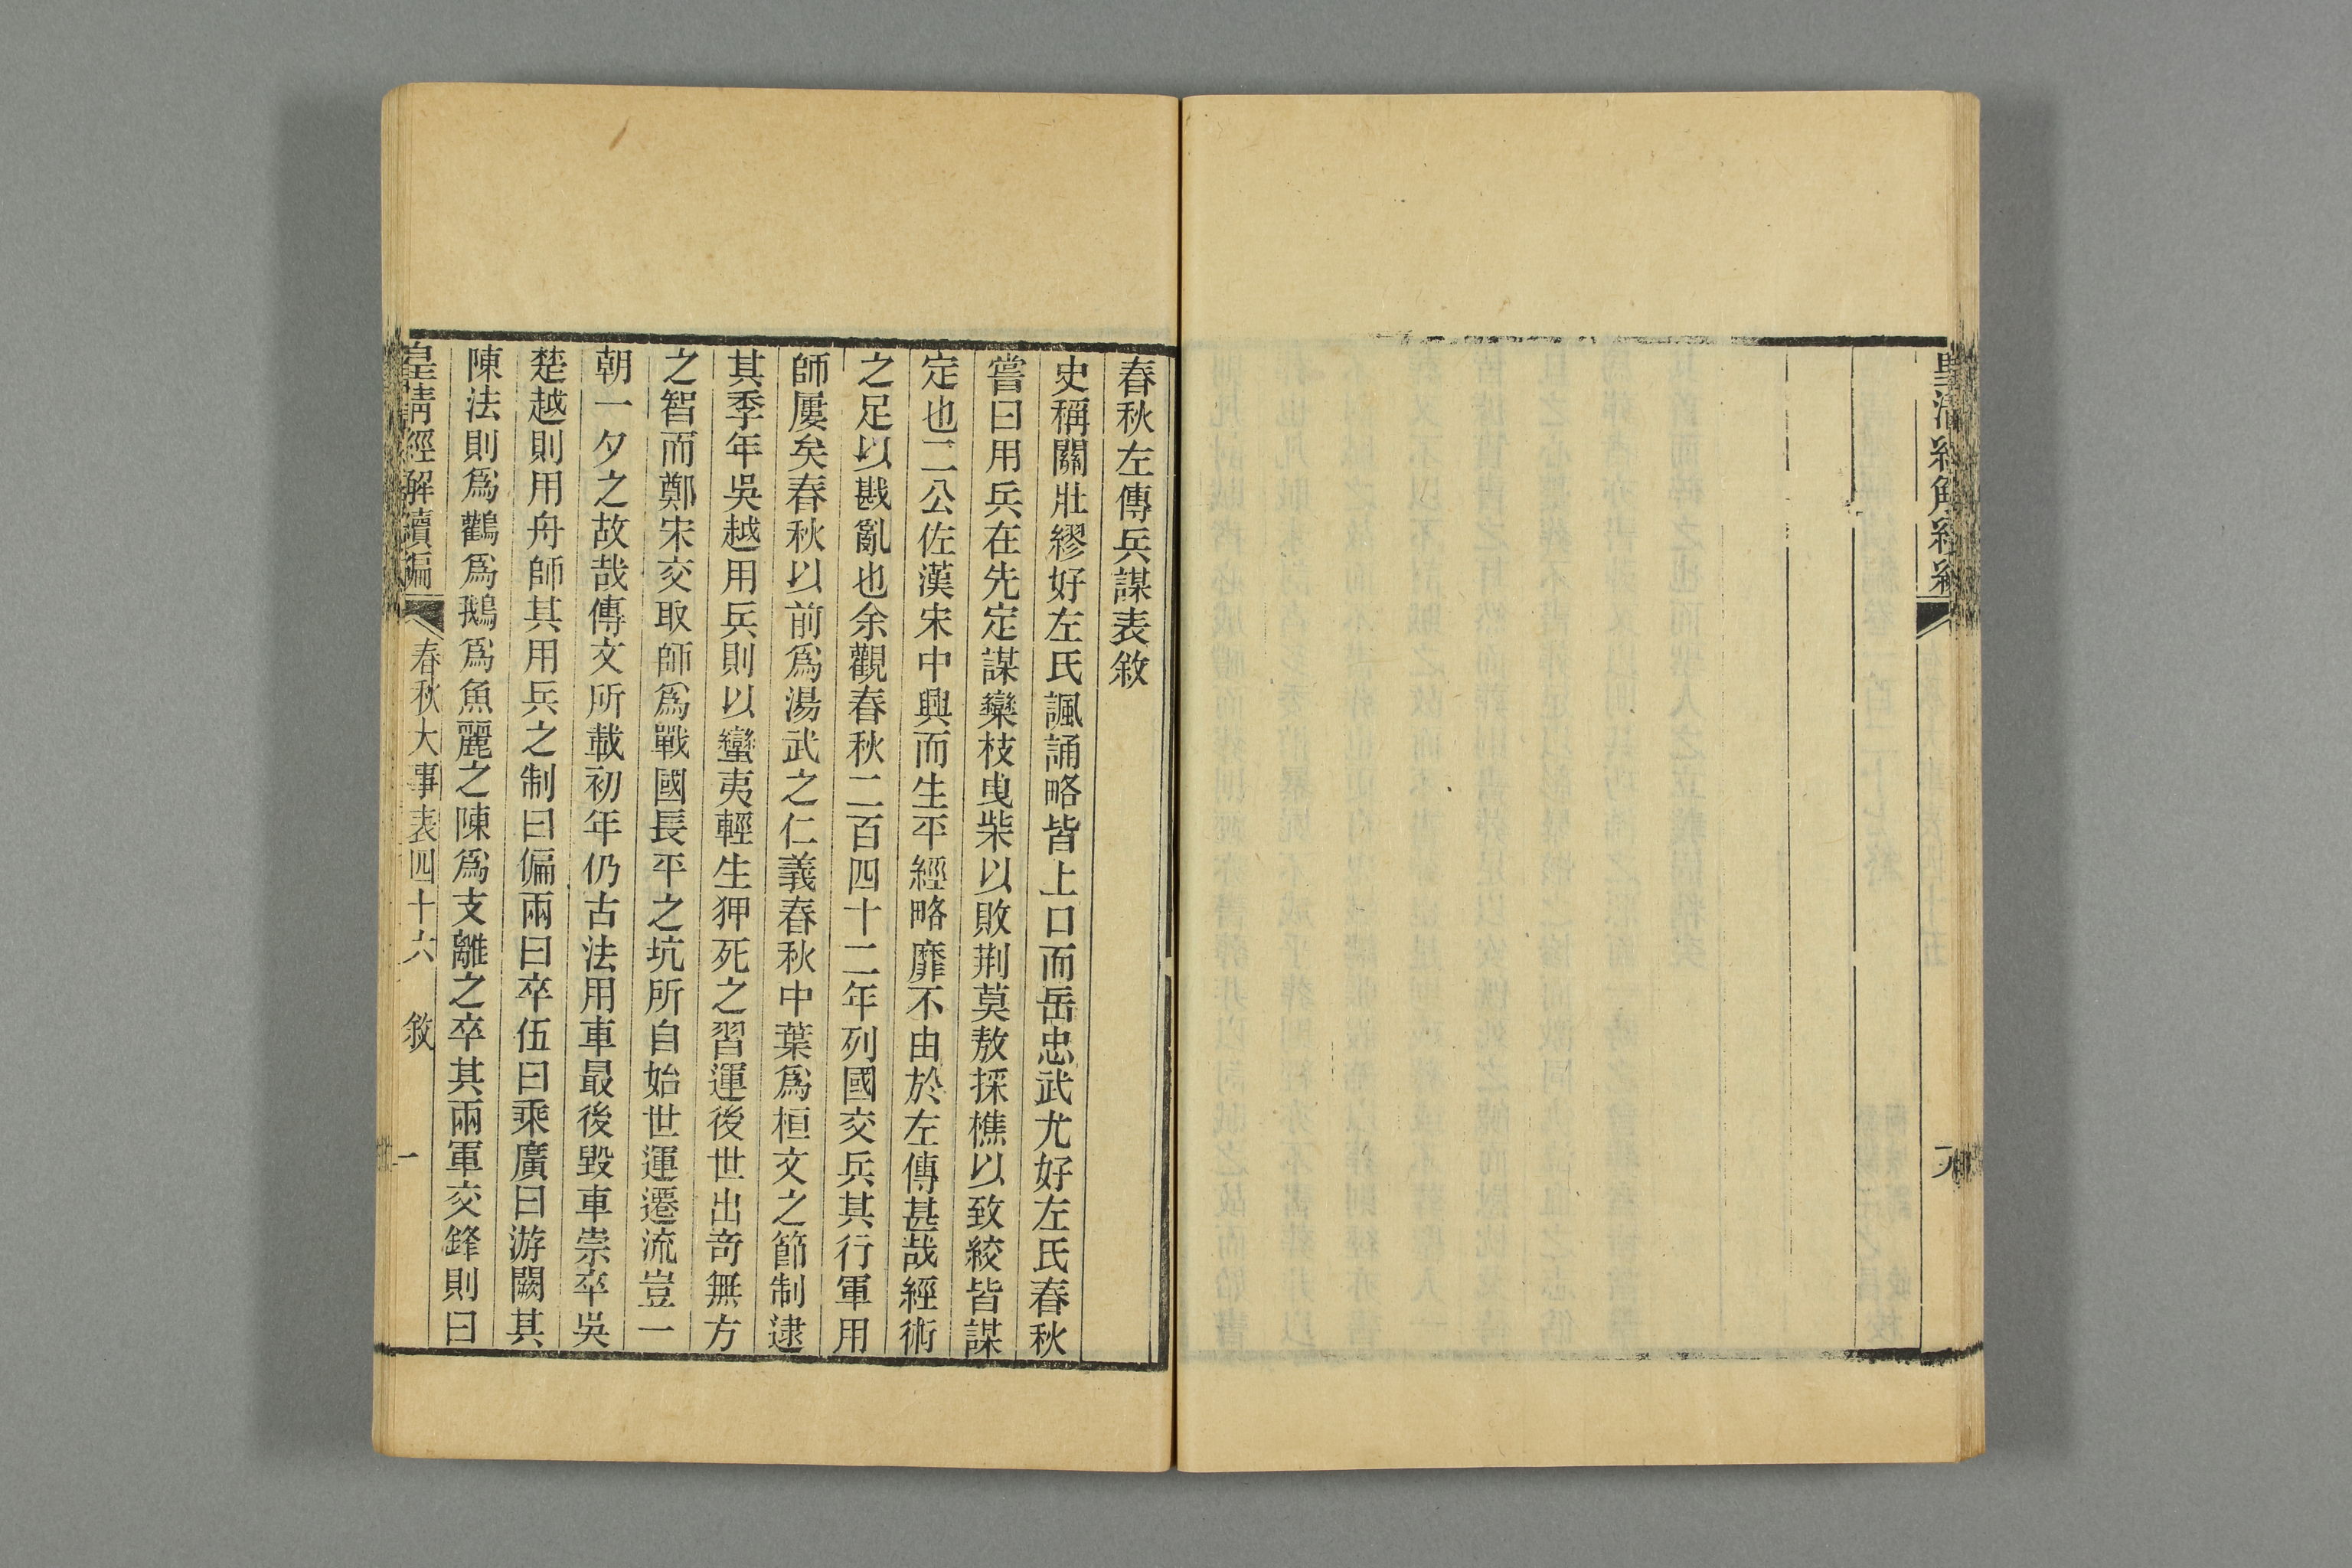 春秋左傳兵謀表敘
史稱關壯繆好左氏諷誦略皆上口而岳忠武尤好左氏春秋
嘗曰用兵在先定謀欒枝曳柴以敗荆莫敖採樵以致絞皆謀
定也二公佐漢宋中興而生平經略靡不由於左傳甚哉經術
之足以戡亂也余觀春秋二百四十二年列國交兵其行軍用
師屢矣春秋以前爲湯武之仁義春秋中葉爲桓文之節制逮
其季年吳越用兵則以蠻夷輕生狎死之習運後世出奇無方
之智而鄭宋交取師爲戰國長平之坑所自始世運遷流豈一
朝一夕之故哉傳文所載初年仍古法用車最後毀車崇卒吳
楚越則用舟師其用兵之制曰偏兩曰卒伍曰乘廣曰游闕其
陳法則爲鸛爲鵝爲魚麗之陳爲支離之卒其兩軍交鋒則曰
皇清經解續編 春秋大事表四十六 敘 一